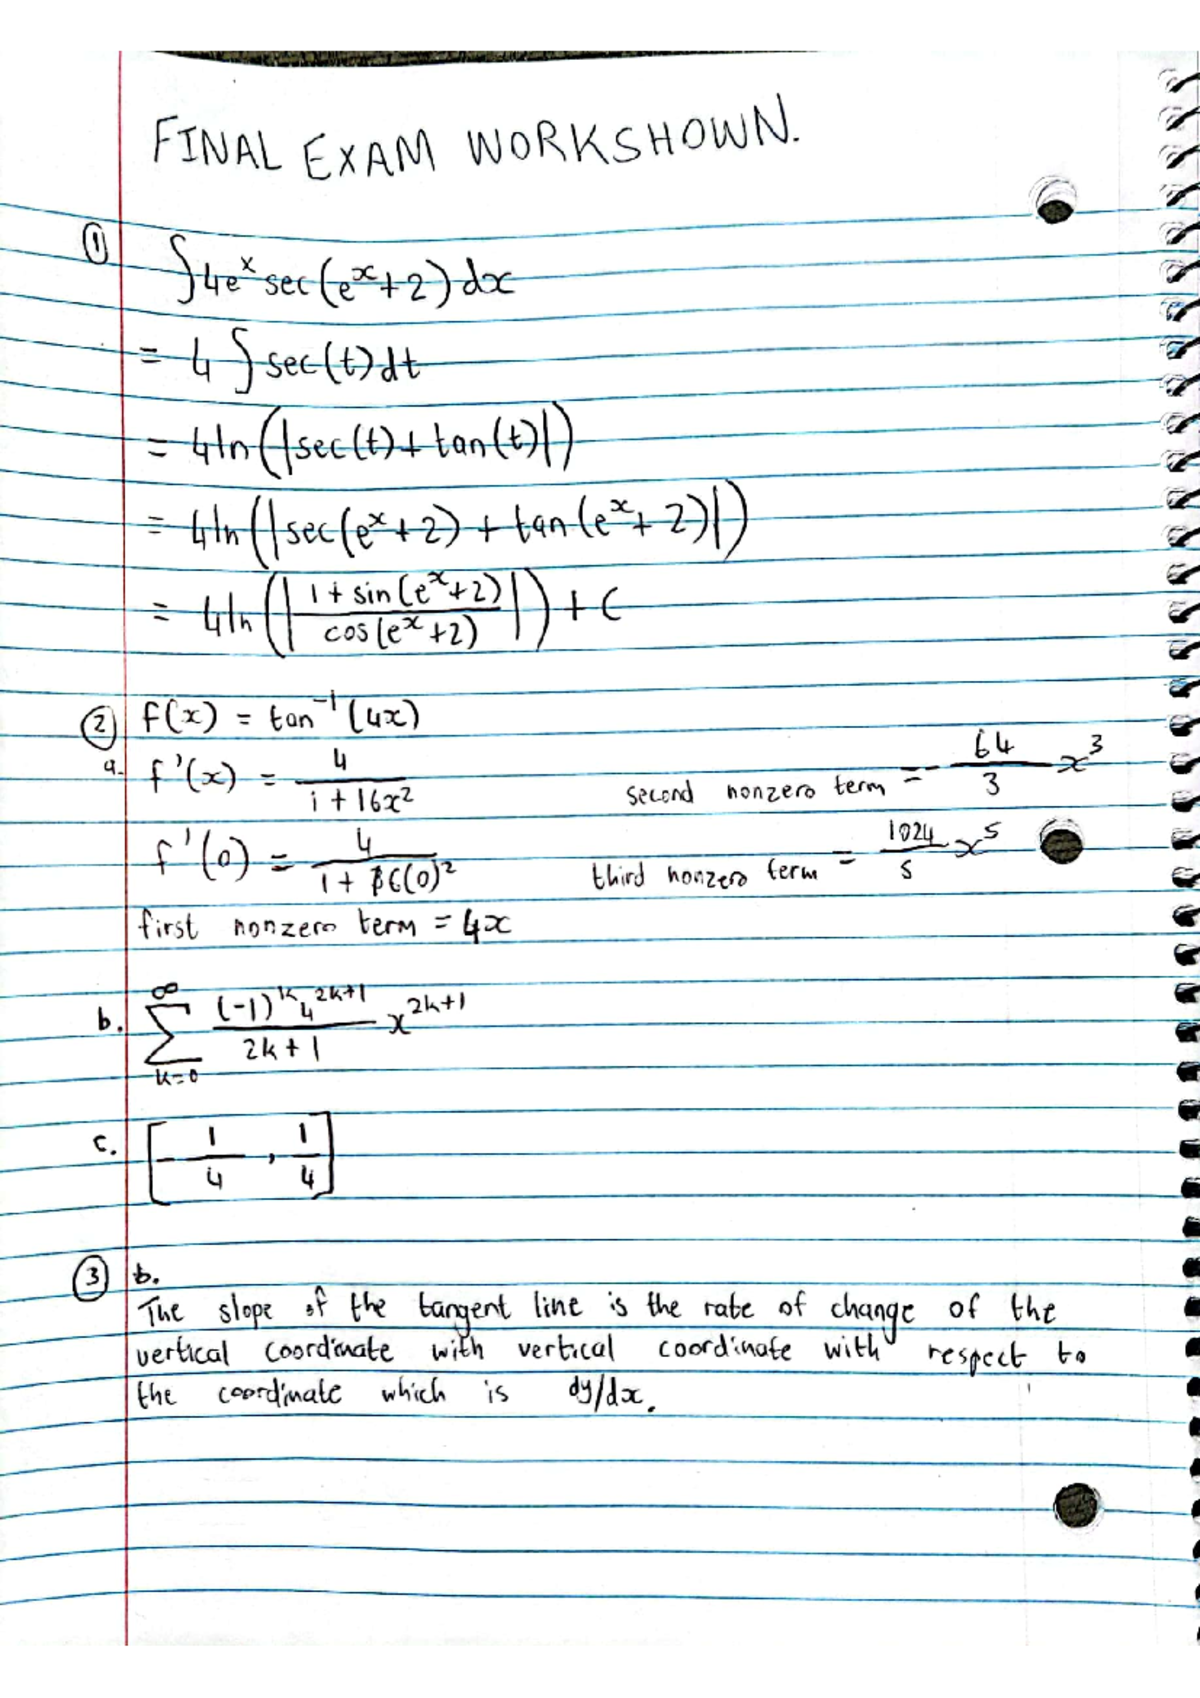 FINAL EXAM WORKSHOWN.
① ∫4eˣ sec(eˣ+2)dx
= 4 ∫sec(t)dt
= 4ln(|sec(t)+tan(t)|)
= 4ln(|sec(eˣ+2) + tan(eˣ+2)|)
= 4ln(|(1+sin(eˣ+2))/(cos(eˣ+2))|)+C
② f(x) = tan⁻¹(4x)
a. f'(x) = 4/(1+16x²)
second nonzero term = -64/3 x³
f'(0) = 4/(1+16(0)²)
third nonzero term = 1024/5 x⁵
first nonzero term = 4x
b. ∞∑k=0 (-1)ᵏ4²ᵏ⁺¹/(2k+1) x²ᵏ⁺¹
c. [-1/4, 1/4]
③ b.
The slope of the tangent line is the rate of change of the
vertical coordinate with vertical coordinate with respect to
the coordinate which is dy/dx.